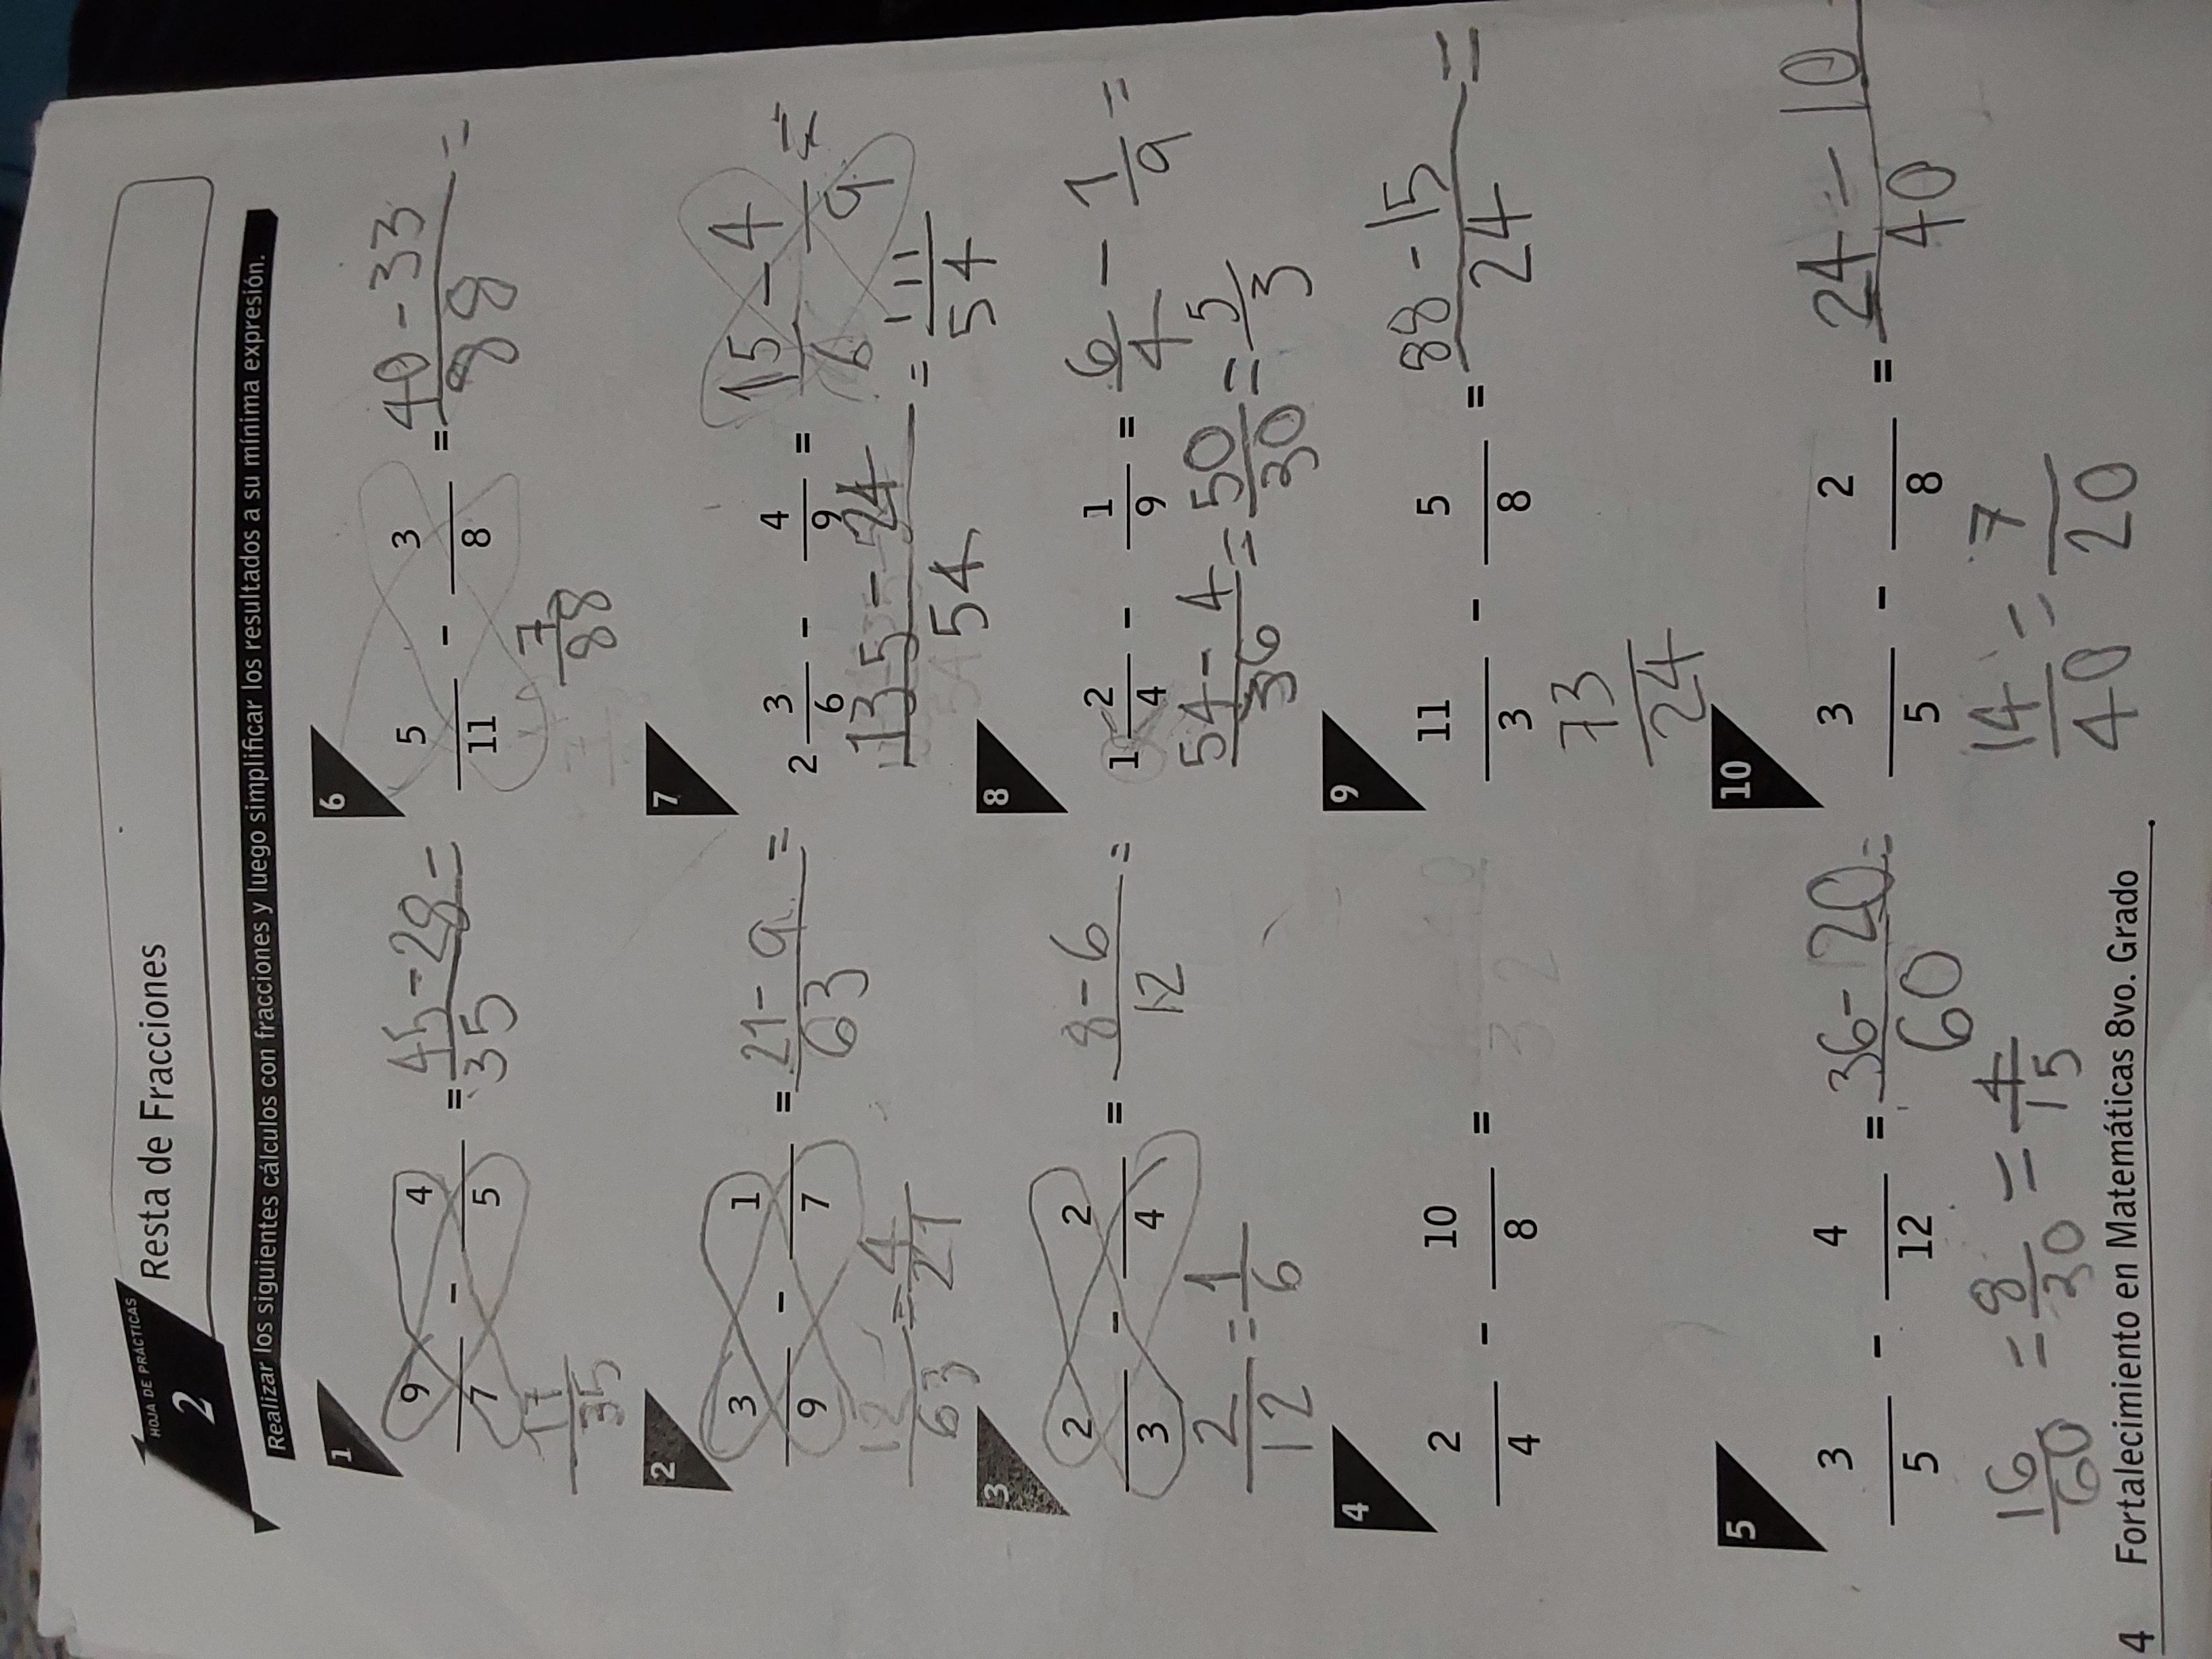 HOJA DE PRÁCTICAS
2
Resta de Fracciones
Realizar los siguientes cálculos con fracciones y luego simplificar los resultados a su mínima expresión.
1
9/7 - 4/5 = 45-28/35 =
17/35
2
3/9 - 1/7 = 21-9/63 =
12/63 = 4/21
3
2/3 - 2/4 = 8-6/12 =
2/12 = 1/6
4
2/4 - 10/8 =
5
3/5 - 4/12 = 36-20/60 =
16/60 = 8/30 = 4/15
6
5/11 - 3/8 = 40-33/88 =
7/88
7
2 3/6 - 4/9 = 15/6 - 4/9 =
135-24/54 = 111/54
8
1 2/4 - 1/9 = 6/4 - 1/9 =
54-4/36 = 50/30 = 5/3
9
11/3 - 5/8 = 88-15/24 =
73/24
10
3/5 - 2/8 = 24-10/40
14/40 = 7/20
4 Fortalecimiento en Matemáticas 8vo. Grado